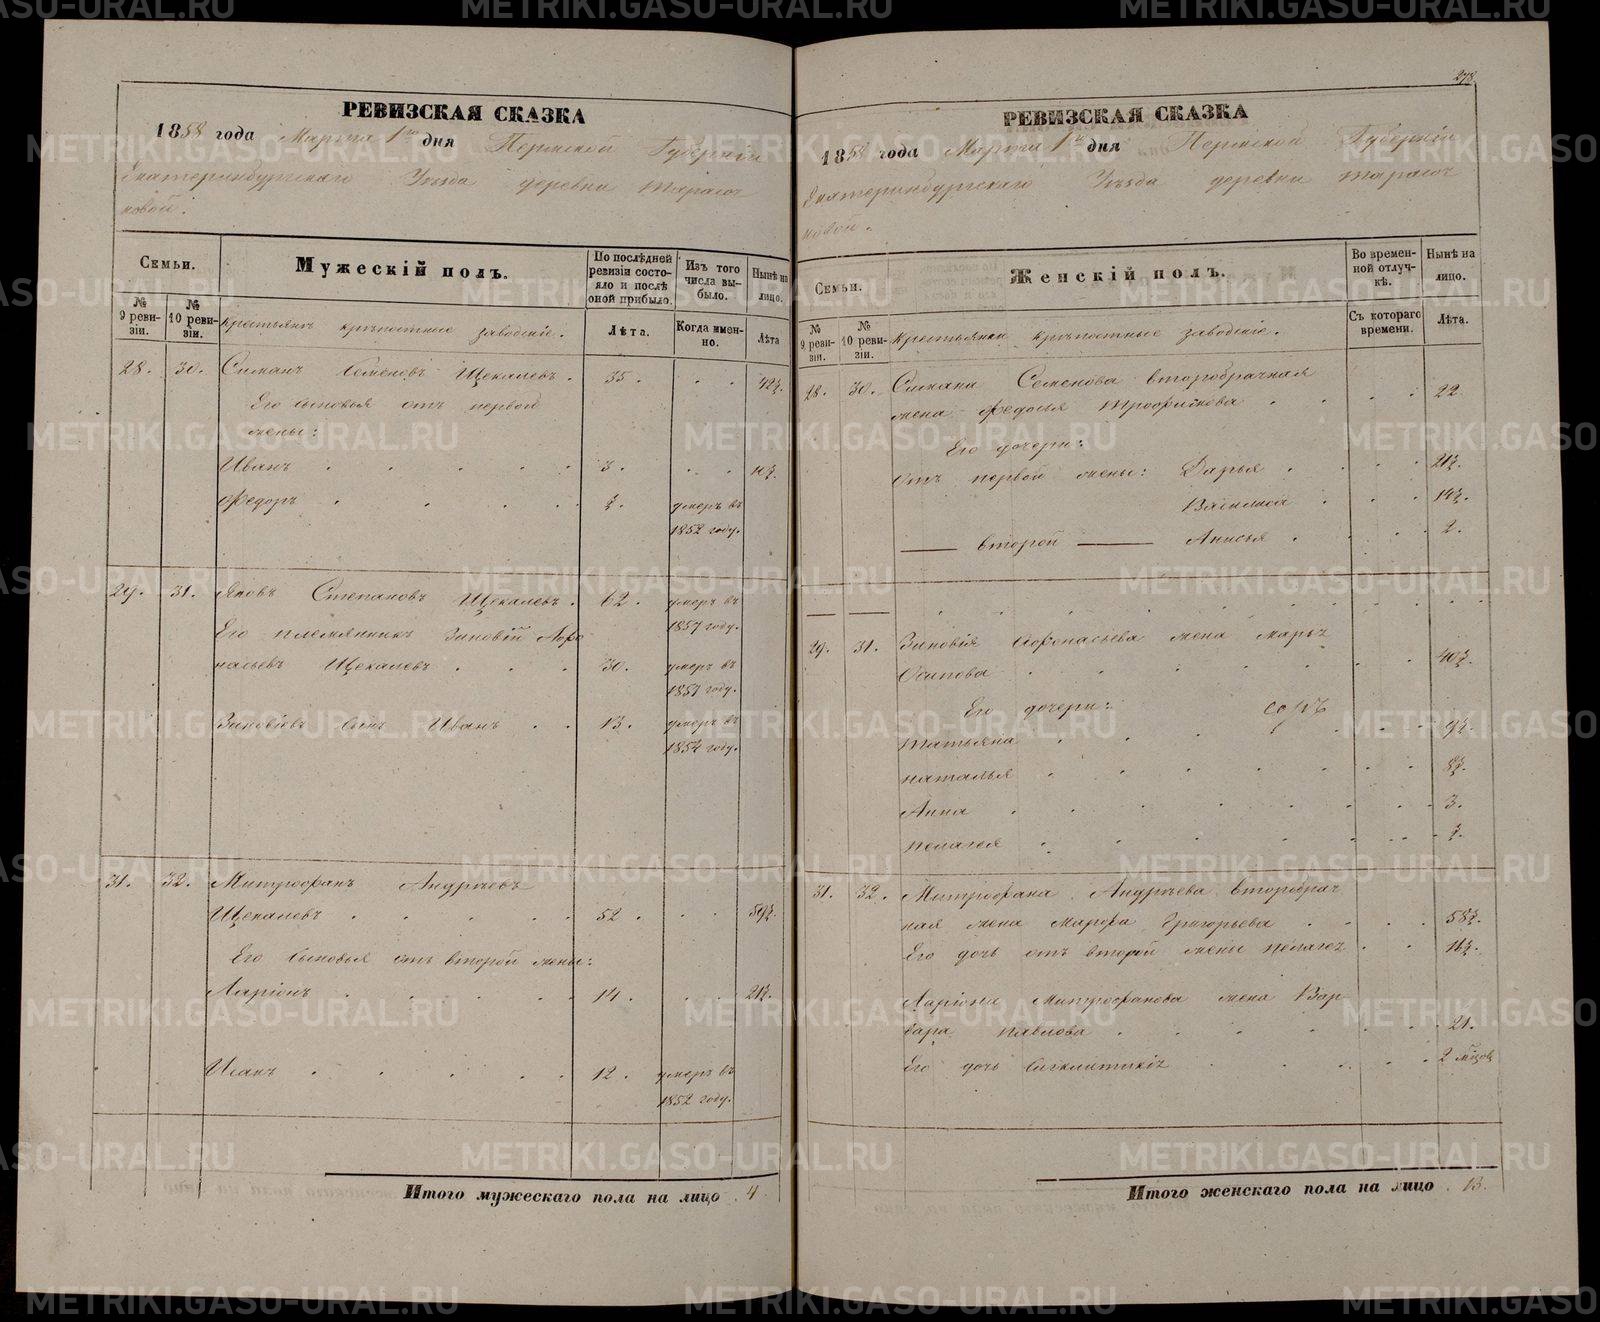 РЕВИЗСКАЯ СКАЗКА
1858 года Марта 1го дня Пермской Губернiи
Екатеринбургскаго Уѣзда деревни Тарасо
ковой.
Семьи.
№ 9 ревизiи.
№ 10 ревизiи.
Мужескiй полъ.
По послѣдней ревизiи состояло и послѣ оной прибыло.
Изъ того числа выбыло.
Нынѣ на лицо.
Крестьянъ крѣпостные заводскiе.
Лѣта.
Когда именно.
Лѣта
28. 30. Симанъ Семеновъ Щекалевъ. 35. 42½.
Его сыновья отъ первой
жены:
Иванъ 3. 10½.
Федоръ ½. умеръ въ
1852 году.
29. 31. Яковъ Степановъ Щекалевъ. 62. умеръ въ
1857 году.
Его племянникъ Зиновiй Афо
насьевъ Щекалевъ 30. умеръ въ
1857 году.
Зиновiевъ сынъ Иванъ 13. умеръ въ
1854 году.
31. 32. Митрофанъ Андрѣевъ
Щекалевъ 52. 59½.
Его сыновья отъ второй жены:
Ларiонъ 14. 21½.
Исакъ 12. умеръ въ
1852 году.
Итого мужескаго пола на лицо 4
278
РЕВИЗСКАЯ СКАЗКА
1858 года Марта 1го дня Пермской Губернiи
Екатеринбургскаго Уѣзда деревни Тарасо
ковой.
Семьи.
№ 9 ревизiи.
№ 10 ревизiи.
Женскiй полъ.
Во временной отлучкѣ.
Нынѣ на лицо.
Крестьянки крѣпостные заводскiе.
Съ котораго времени.
Лѣта.
28. 30. Симана Семенова второбрачная
жена Федосья Трофимова 22.
Его дочери:
отъ первой жены: Дарья 21½.
Василиса 14½.
второй Анисья 2.
29. 31. Зиновiя Афонасьева жена Марья
Осипова 40½.
Его дочери:
Татьяна 9½.
Наталья 8½.
Анна 3.
Пелагея ½.
31. 32. Митрофана Андрѣева второбрач
ная жена Марфа Григорьева 58½.
Его дочь отъ второй жены Пелагея 16½.
Ларiона Митрофанова жена Вар
вара Павлова 21.
Его дочь Сиклитикiя 2 мѣсяц
Итого женскаго пола на лицо 13.
METRIKI.GASO-URAL.RU